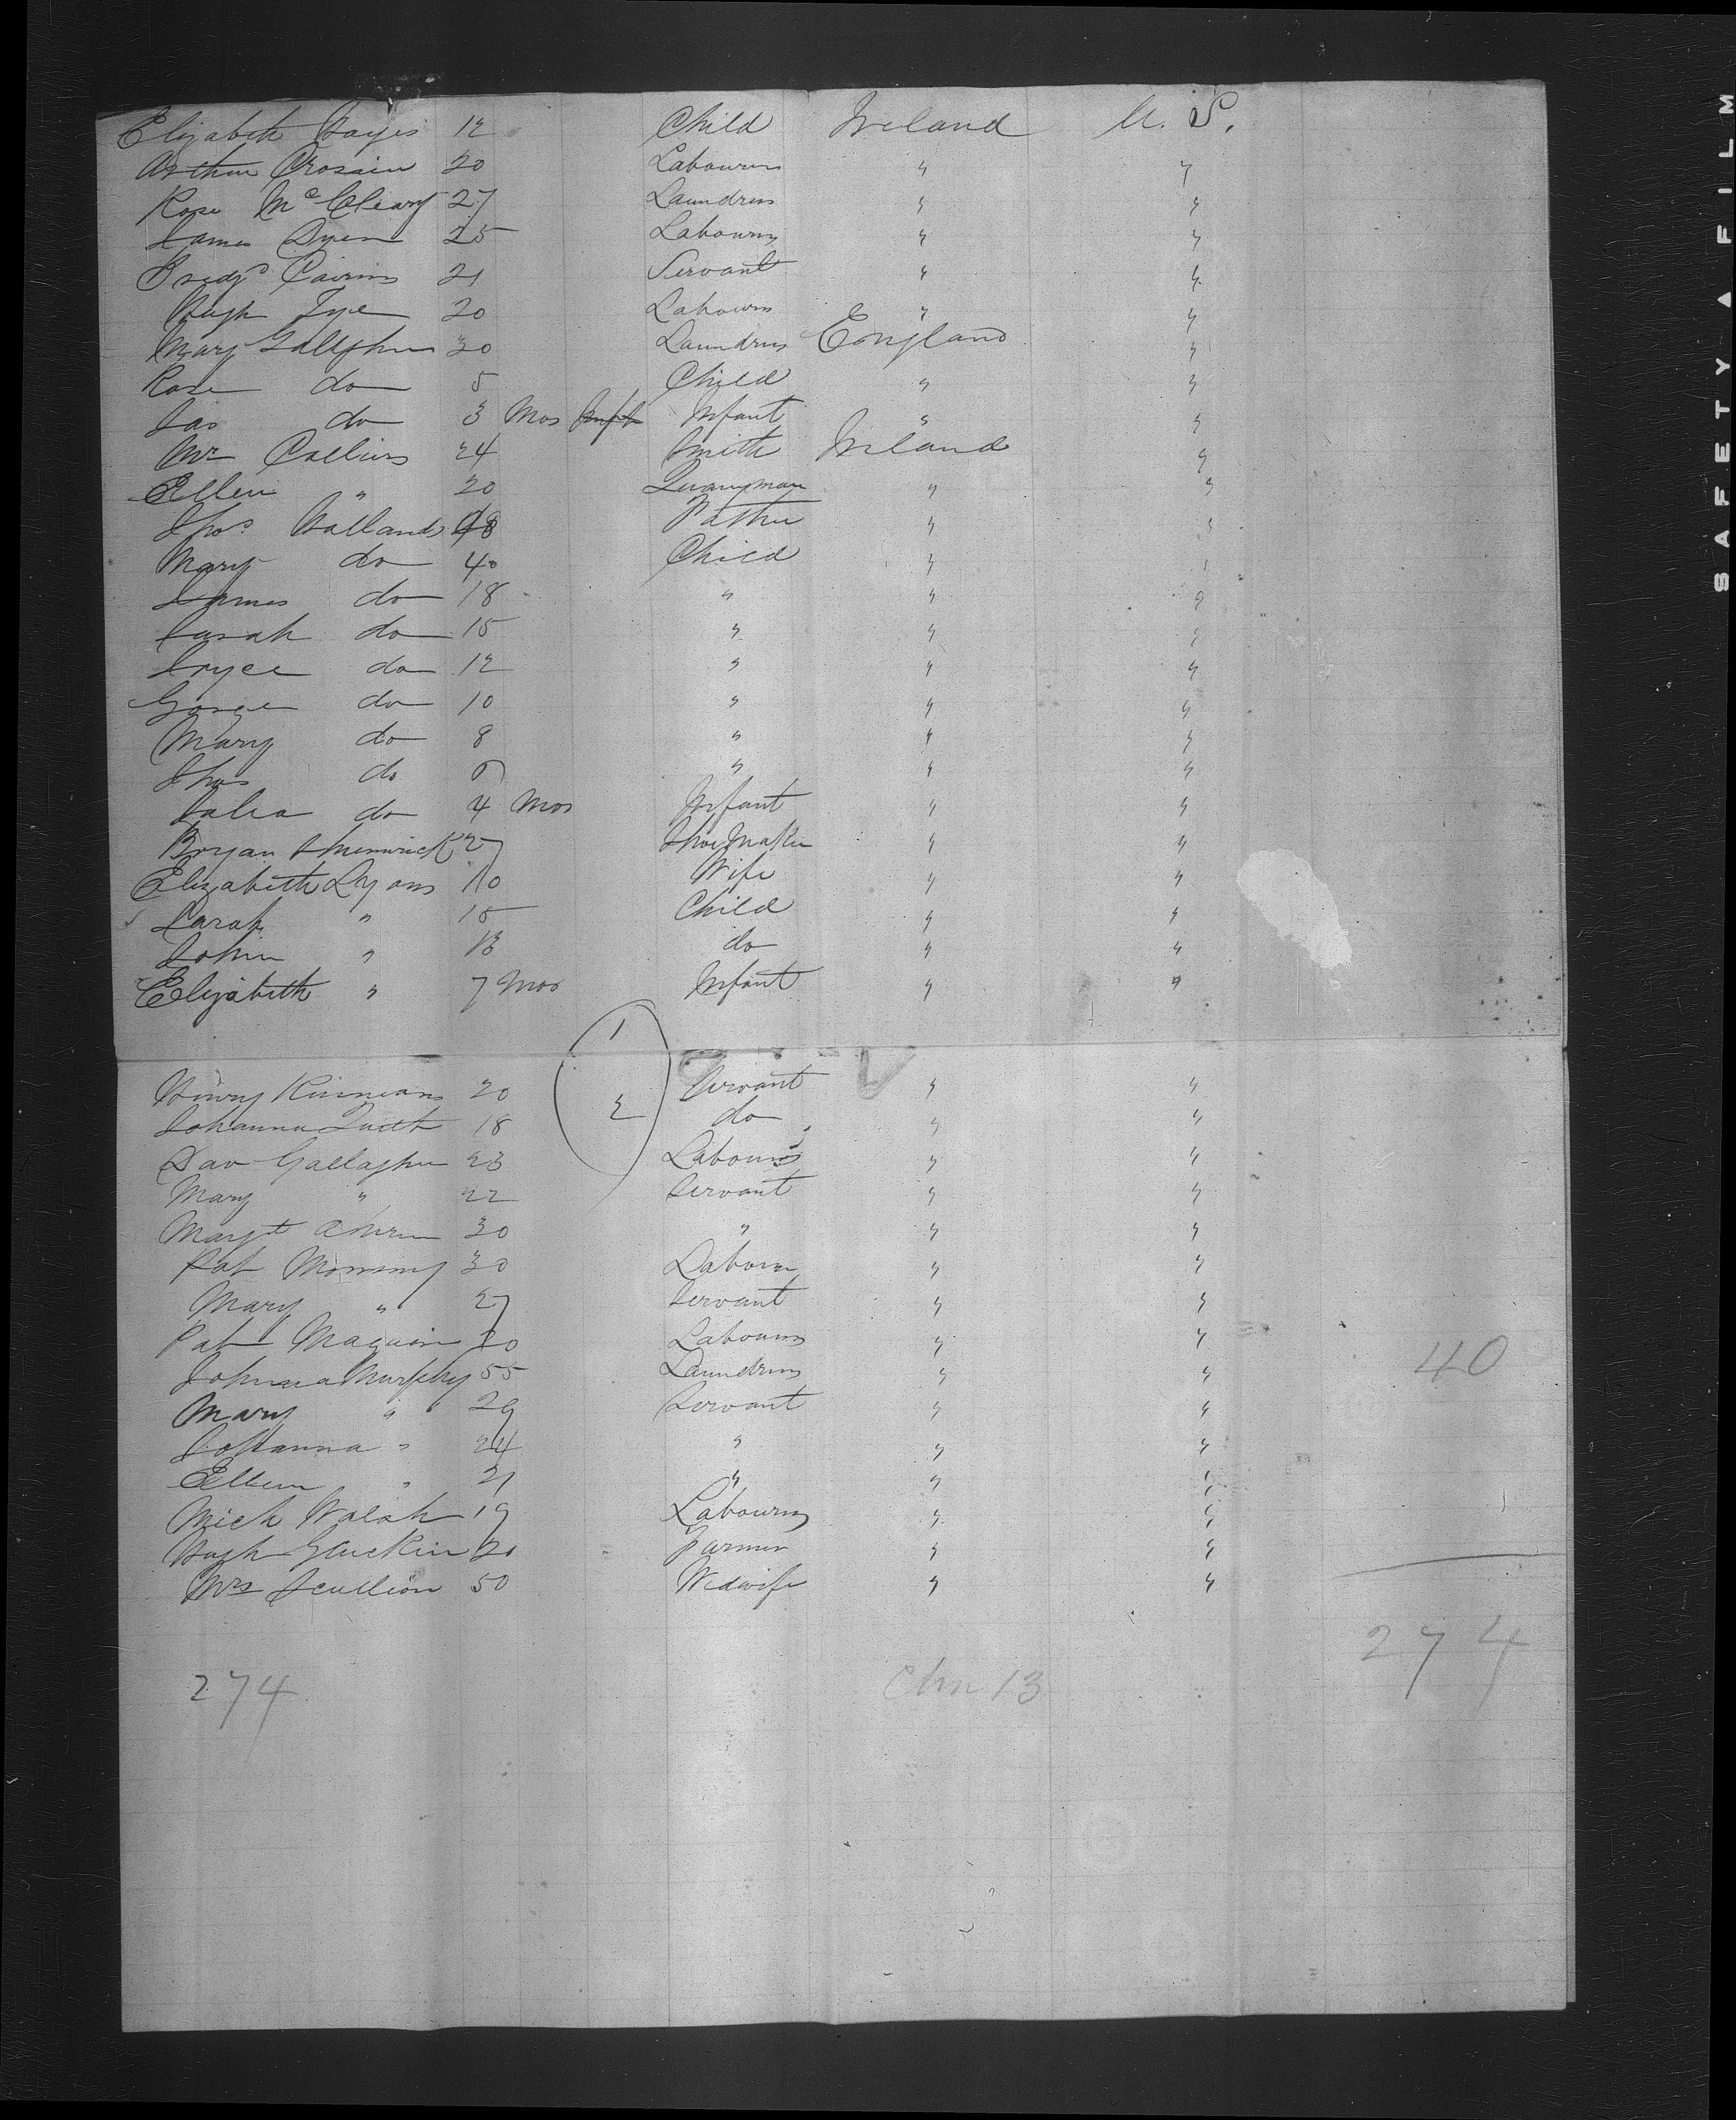 Elizabeth Hayes 12 Child Ireland U. S.
Arthur 20 Labourer " "
Rose McCleary 27 Laundress " "
James Dyer 25 Labourer " "
Bridgt Cairns 21 Servant " "
Hugh Tye 20 Labourer " "
Mary Gallagher 30 Laundress England "
Rose do 5 Child " "
Jas do 3 Mos Infant " "
Wm Collins 24 Smith Ireland "
Ellen " 20 Quarryman " "
Thos Holland 48 Father " "
Mary do 40 Child " "
James do 18 " " "
Sarah do 15 " " "
Joyce do 12 " " "
George do 10 " " "
Mary do 8 " " "
Thos do 6 " " "
Julia do 4 Mos Infant " "
Bryan 27 ShoeMaker " "
Elizabeth Lyons Wife " "
Sarah " 15 Child " "
John " 13 do " "
Elizabeth " 7 Mos Infant " "
1
Henry 20 Servant " "
2
Johanna 18 do " "
Dav Gallagher 23 Labourer " "
Mary " 22 Servant " "
Margt 30 " " "
Pat 30 Labourer " "
Mary " 27 Servant " "
Pat Maguire 20 Labourer " "
40
Johanna Murphy 55 Laundress " "
Mary " 29 Servant " "
Johanna " 24 " " "
Ellen " 21 " " "
Mich Walsh 19 Labourer " "
Hugh Gluckin 20 Farmer " "
Mrs Scullion 50 Midwife " "
274
274 Chn 13
SAFETY A FILM